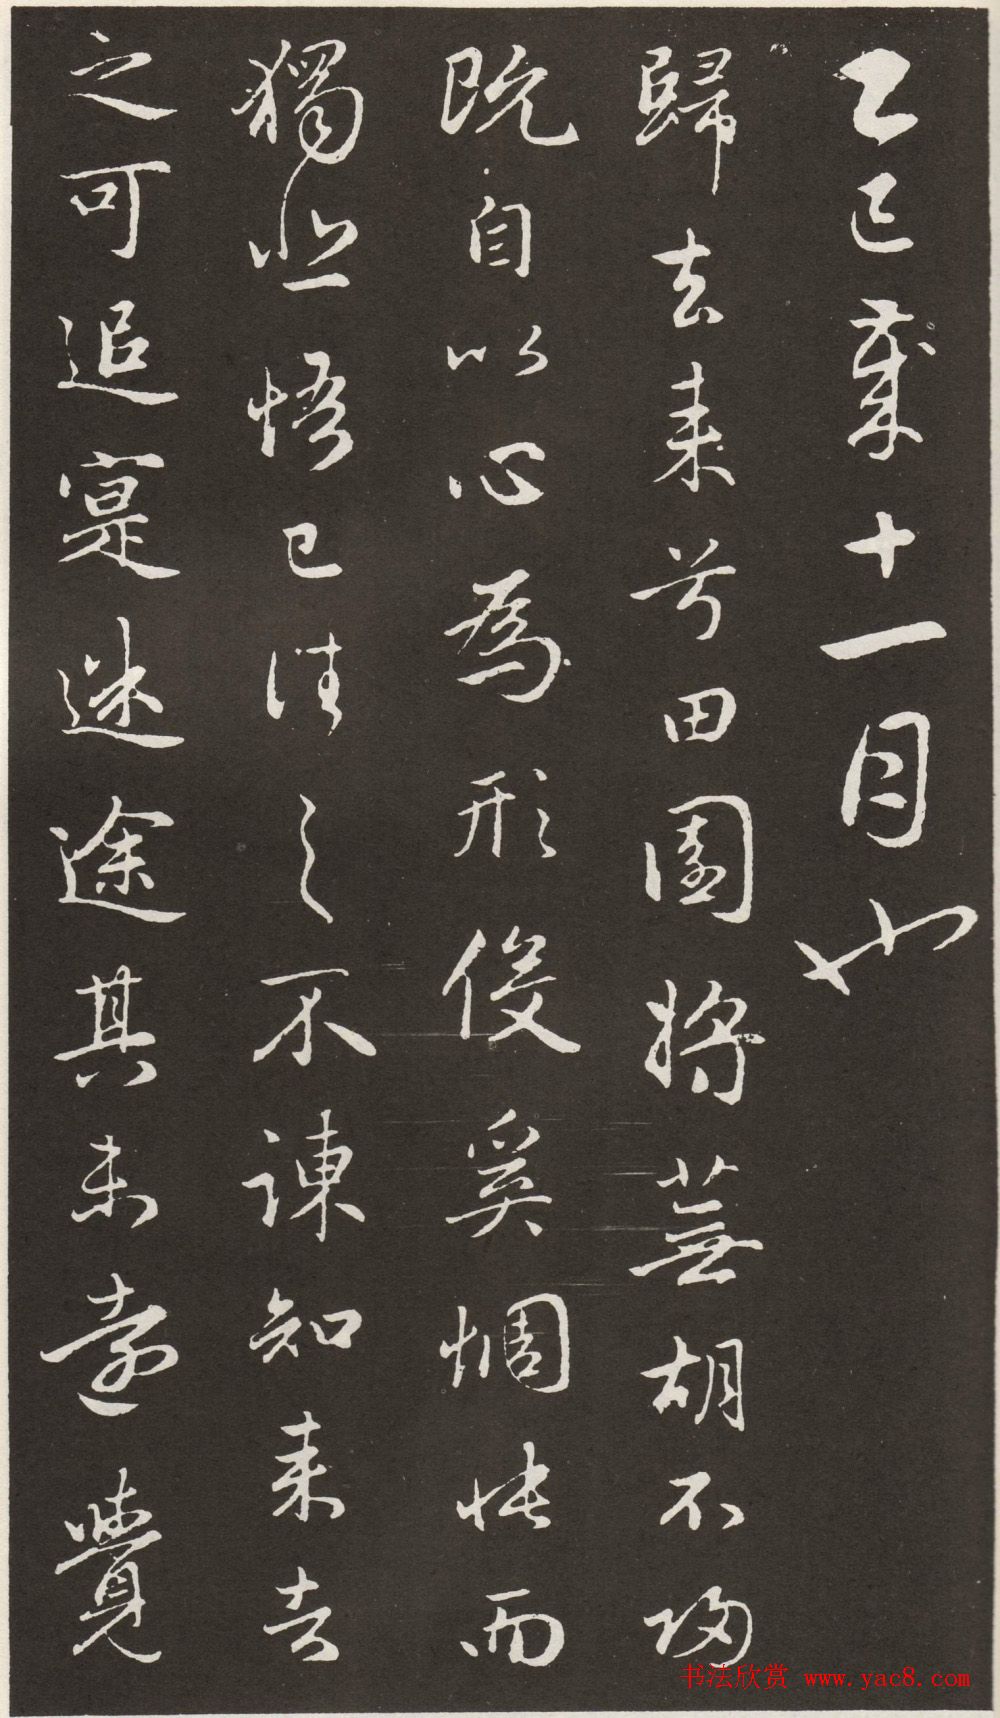 乙巳歲十一月也
歸去来兮田園將蕪胡不歸
既自以心為形役奚惆悵而
獨悲悟已往之不諫知来者
之可追寔迷途其未遠覺
书法欣赏 www.yac8.com